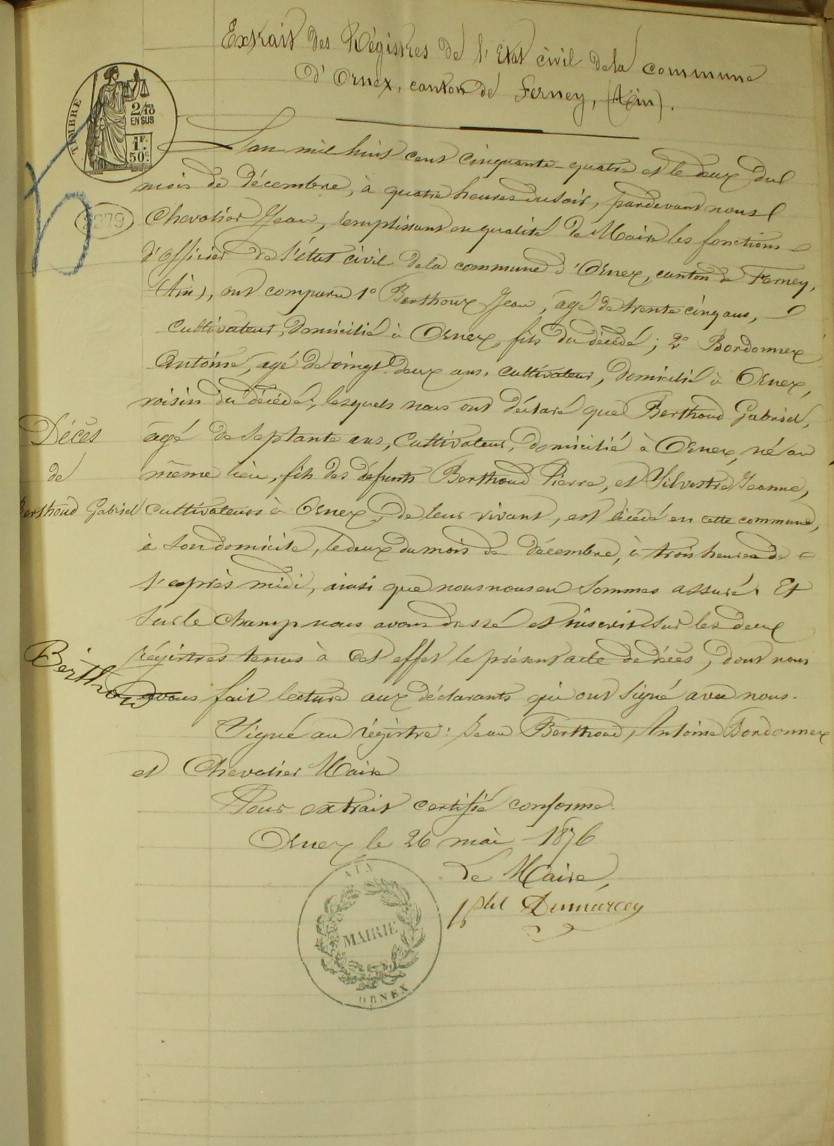 Extrait des Régistres de l'Etat civil de la commune
d'Ornex, canton de Ferney, (Ain).
TIMBRE
2/10
EN SUS
1F.
50c
L'an mil huit cent cinquante-quatre et le deux du
mois de décembre, à quatre heures du soir, pardevant nous
Chevalier Jean, remplissant en qualité de Maire les fonctions
d'officier de l'état civil de la commune d'Ornex, canton de Ferney,
(Ain), ont comparu 1o Berthoux Jean, âgé de trente cinq ans,
cultivateur, domicilié à Ornex, fils du décédé; 2o Bordonnex
Antoine, agé de vingt deux ans, cultivateur, domicilié à Ornex,
voisin du décédé, lesquels nous ont déclaré que Berthoud Gabriel,
Décès
de
Berthoud Gabriel
âgé de septante ans, cultivateur, domicilié à Ornex, né au
même lieu, fils des défunts Berthoud Pierre, et Silvestre Jeanne,
cultivateurs à Ornex, de leur vivant, est décédé en cette commune,
à son domicile, le deux du mois de décembre, à trois heures de
l'après midi, ainsi que nous nous en sommes assuré. Et
sur le champ nous avons dressé et inscrit sur les deux
régistres tenus à cet effet le présent acte de décès, dont nous
Berthoud
avons fait lecture aux déclarants qui ont signé avec nous.
Signé au régistre: Jean Berthoud, Antoine Bordonnex
et Chevalier Maire
Pour extrait certifié conforme.
Ornex le 26 mai 1876
Le Maire,
Dumarcey
AIN
MAIRIE
ORNEX